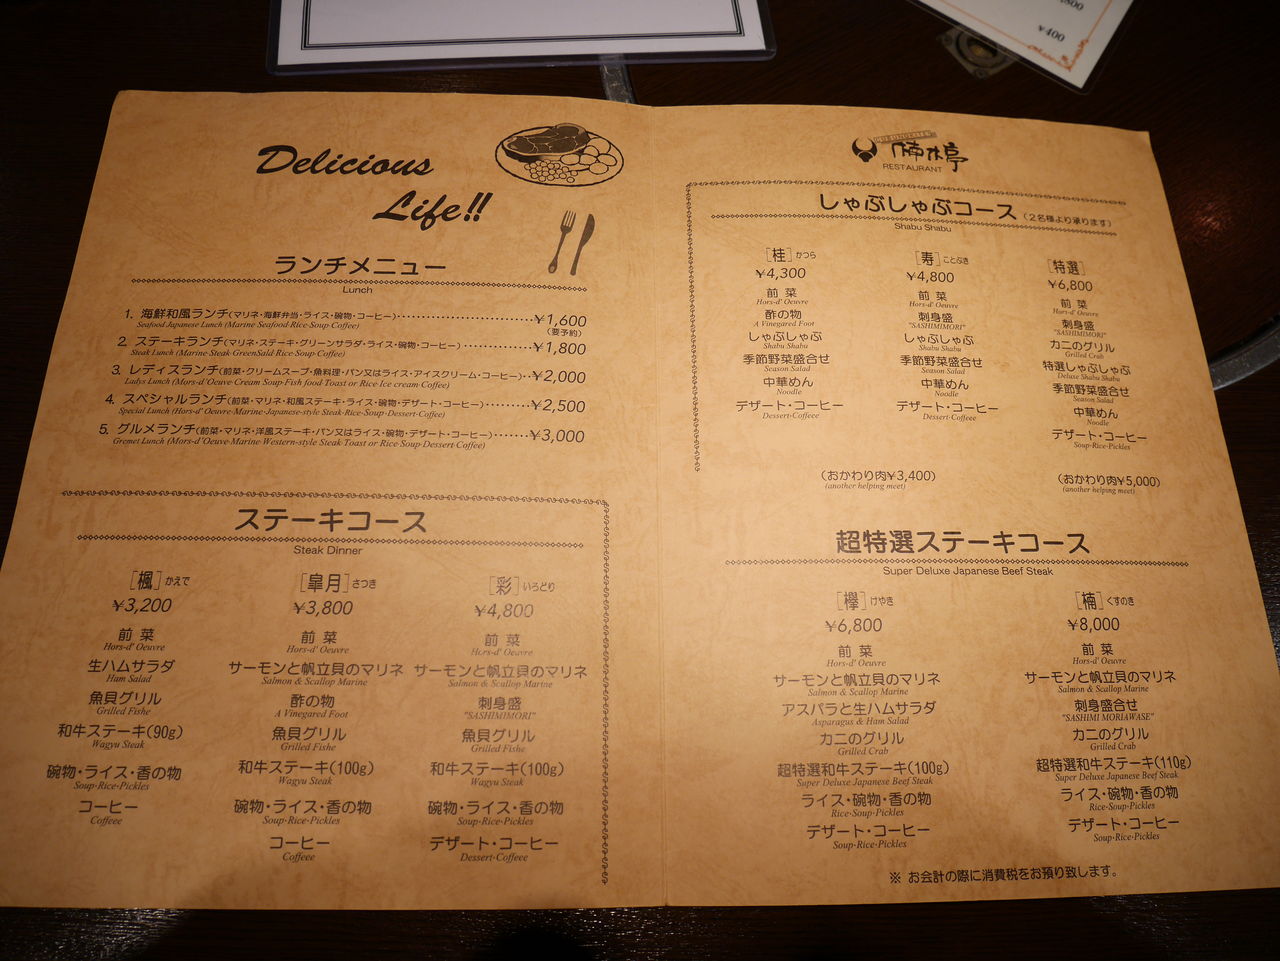 ¥400
Delicious
Life!!
ランチメニュー
Lunch
1. 海鮮和風ランチ(マリネ・海鮮弁当・ライス・碗物・コーヒー)‥‥‥‥‥‥‥¥1,600
Seafood Japanese Lunch (Marine·Seafood·Rice·Soup·Coffee)
(要予約)
2. ステーキランチ(マリネ・ステーキ・グリーンサラダ・ライス・碗物・コーヒー)‥‥‥¥1,800
Steak Lunch (Marine·Steak·GreenSald·Rice·Soup·Coffee)
3. レディスランチ(前菜・クリームスープ・魚料理・パン又はライス・アイスクリーム・コーヒー)‥¥2,000
Ladys Lunch (Mors-d'Oeuve·Cream Soup·Fish food·Toast or Rice·Ice cream·Coffee)
4. スペシャルランチ(前菜・マリネ・和風ステーキ・ライス・碗物・デザート・コーヒー)‥‥‥¥2,500
Special Lunch (Hors-d'Oeuvre·Marine·Japanese-style Steak·Rice·Soup·Dessert·Coffee)
5. グルメランチ(前菜・マリネ・洋風ステーキ・パン又はライス・碗物・デザート・コーヒー)‥‥¥3,000
Gremet Lunch (Mors-d'Oeuve·Marine·Western-style Steak·Toast or Rice·Soup·Dessert·Coffee)
ステーキコース
Steak Dinner
[楓] かえで
¥3,200
前 菜
Hors-d' Oeuvre
生ハムサラダ
Ham Salad
魚貝グリル
Grilled Fishe
和牛ステーキ(90g)
Wagyu Steak
碗物・ライス・香の物
Soup·Rice·Pickles
コーヒー
Coffeee
[皐月] さつき
¥3,800
前 菜
Hors-d' Oeuvre
サーモンと帆立貝のマリネ
Salmon & Scallop Marine
酢の物
A Vinegared Foot
魚貝グリル
Grilled Fishe
和牛ステーキ(100g)
Wagyu Steak
碗物・ライス・香の物
Soup·Rice·Pickles
コーヒー
Coffeee
[彩] いろどり
¥4,800
前 菜
Hors-d' Oeuvre
サーモンと帆立貝のマリネ
Salmon & Scallop Marine
刺身盛
"SASHIMIMORI"
魚貝グリル
Grilled Fishe
和牛ステーキ(100g)
Wagyu Steak
碗物・ライス・香の物
Soup·Rice·Pickles
デザート・コーヒー
Dessert·Coffeee
楠木亭
RESTAURANT
しゃぶしゃぶコース (2名様より承ります)
Shabu Shabu
[桂] かつら
¥4,300
前 菜
Hors-d' Oeuvre
酢の物
A Vinegared Foot
しゃぶしゃぶ
Shabu Shabu
季節野菜盛合せ
Season Salad
中華めん
Noodle
デザート・コーヒー
Dessert·Coffeee
[寿] ことぶき
¥4,800
前 菜
Hors-d' Oeuvre
刺身盛
"SASHIMIMORI"
しゃぶしゃぶ
Shabu Shabu
季節野菜盛合せ
Season Salad
中華めん
Noodle
デザート・コーヒー
Dessert·Coffeee
[特選]
¥6,800
前 菜
Hors-d' Oeuvre
刺身盛
"SASHIMIMORI"
カニのグリル
Grilled Crab
特選しゃぶしゃぶ
Deluxe Shabu Shabu
季節野菜盛合せ
Season Salad
中華めん
Noodle
デザート・コーヒー
Soup·Rice·Pickles
(おかわり肉¥3,400)
(another helping meet)
(おかわり肉¥5,000)
(another helping meet)
超特選ステーキコース
Super Deluxe Japanese Beef Steak
[欅] けやき
¥6,800
前 菜
Hors-d' Oeuvre
サーモンと帆立貝のマリネ
Salmon & Scallop Marine
アスパラと生ハムサラダ
Asparagus & Ham Salad
カニのグリル
Grilled Crab
超特選和牛ステーキ(100g)
Super Deluxe Japanese Beef Steak
ライス・碗物・香の物
Rice·Soup·Pickles
デザート・コーヒー
Soup·Rice·Pickles
[楠] くすのき
¥8,000
前 菜
Hors-d' Oeuvre
サーモンと帆立貝のマリネ
Salmon & Scallop Marine
刺身盛合せ
"SASHIMI MORIAWASE"
カニのグリル
Grilled Crab
超特選和牛ステーキ(110g)
Super Deluxe Japanese Beef Steak
ライス・碗物・香の物
Rice·Soup·Pickles
デザート・コーヒー
Soup·Rice·Pickles
※ お会計の際に消費税をお預り致します。